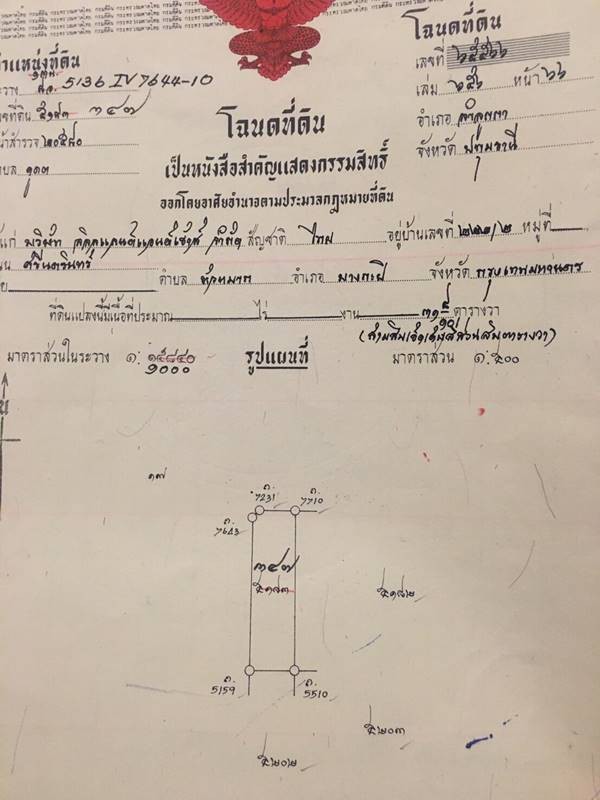 โฉนดที่ดิน
ตำแหน่งที่ดิน
ระวาง 5136 IV 7644-10
เลขที่
เลขที่ดิน ๕๑๙๓ ๓๔๗
เล่ม หน้า ๖๖
หน้าสำรวจ
โฉนดที่ดิน
อำเภอ ลำลูกกา
ตำบล คูคต
เป็นหนังสือสำคัญแสดงกรรมสิทธิ์
จังหวัด ปทุมธานี
ออกโดยอาศัยอำนาจตามประมวลกฎหมายที่ดิน
บริษัท จำกัด สัญชาติ ไทย อยู่บ้านเลขที่ หมู่ที่
ศรีนครินทร์ ตำบล หัวหมาก อำเภอ บางกะปิ จังหวัด กรุงเทพมหานคร
ที่ดินแปลงนี้มีเนื้อที่ประมาณ ไร่ งาน ตารางวา
มาตราส่วนในระวาง ๑: ๑๕๘๔๐ รูปแผนที่ มาตราส่วน ๑:๕๐๐
๑๐๐๐
๑๗
7231 7710
7643
๓๔๗
๕๑๙๓
๕๑๙๒
5159 5510
๕๒๐๓
๕๒๐๒